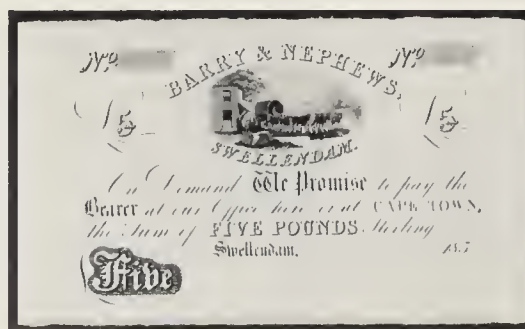 No. No.
BARRY & NEPHEWS,
£5 £5
SWELLENDAM.
On Demand We Promise to pay the
Bearer at our Office here or at CAPE TOWN,
the Sum of FIVE POUNDS Sterling
Swellendam, 185
Five